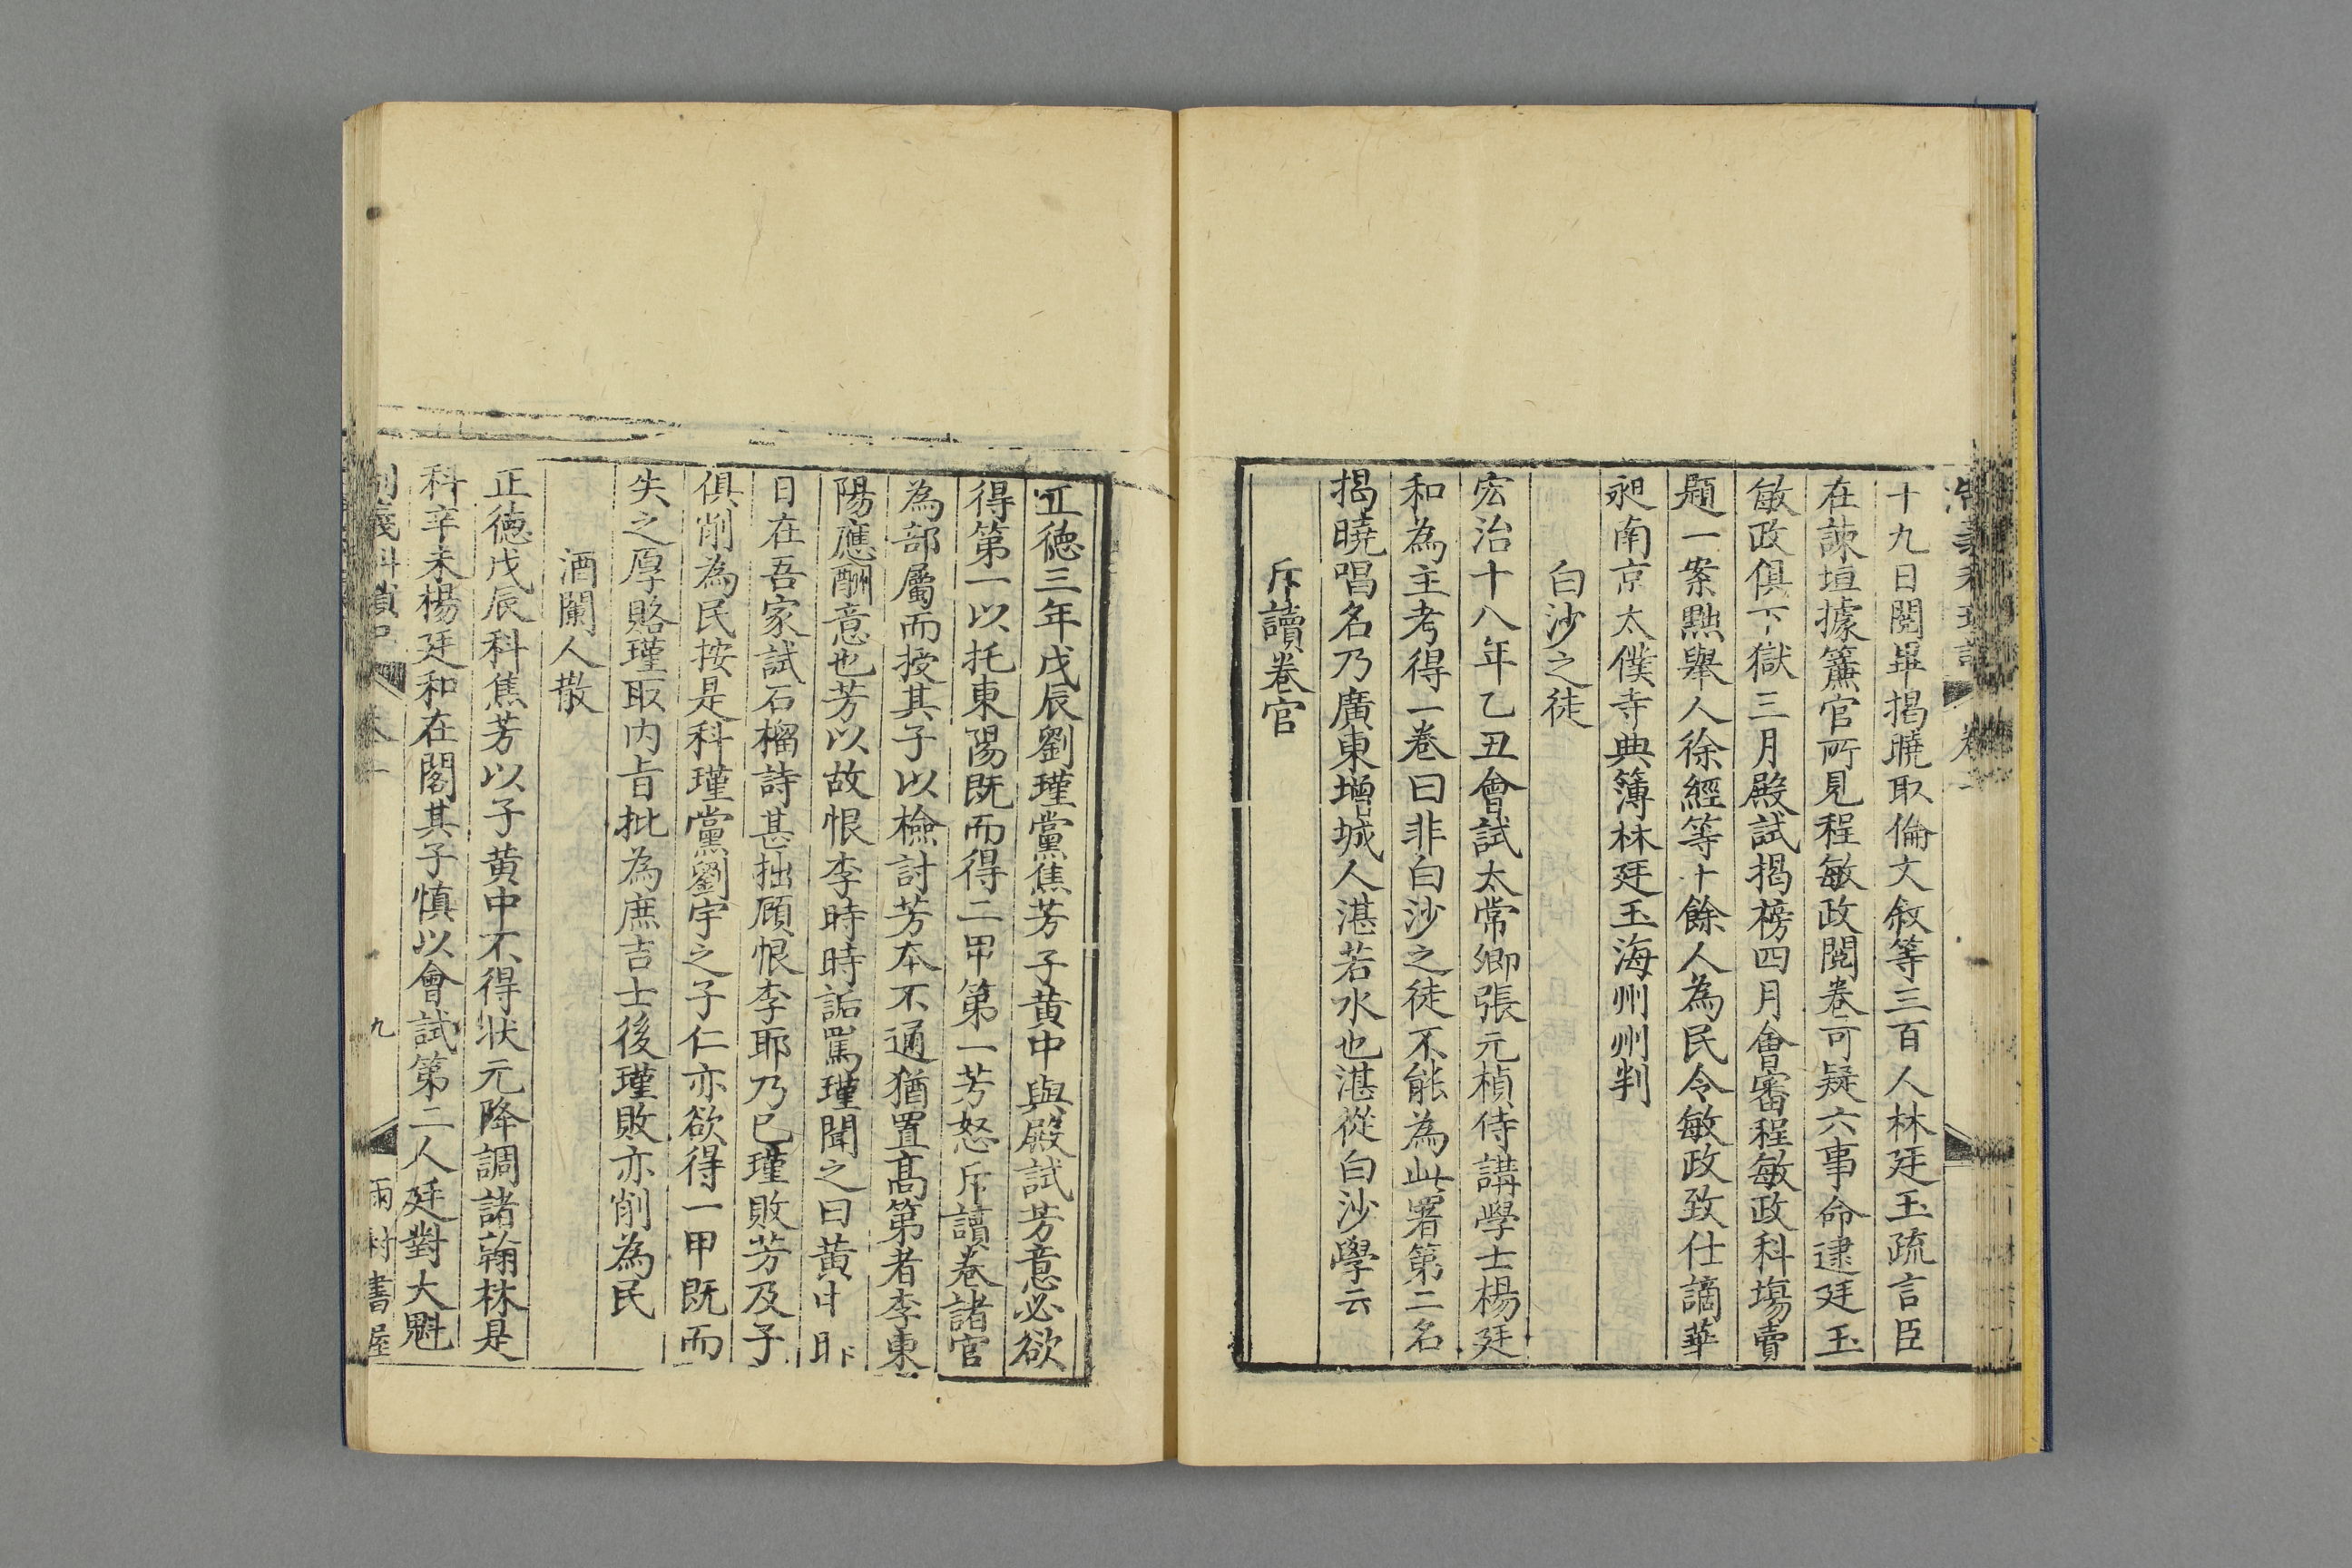 十九日閱畢揭曉取倫文敘等三百人林廷玉疏言臣
在諫垣據簾官所見程敏政閱卷可疑六事命逮廷玉
敏政俱下獄三月殿試揭榜四月會審程敏政科塲賣
題一案黜舉人徐經等十餘人為民令敏政致仕謫華
昶南京太僕寺典簿林廷玉海州州判
白沙之徒
宏治十八年乙丑會試太常卿張元楨侍講學士楊廷
和為主考得一卷曰非白沙之徒不能為此署第二名
揭曉唱名乃廣東增城人湛若水也湛從白沙學云
斥讀卷官
正德三年戊辰劉瑾黨焦芳子黃中與殿試芳意必欲
得第一以托東陽既而得二甲第一芳怒斥讀卷諸官
為部屬而授其子以檢討芳本不通猶置高第者李東
陽應酬意也芳以故恨李時時詬罵瑾聞之曰黃中昨
日在吾家試石榴詩甚拙顧恨李耶乃已瑾敗芳及子
俱削為民按是科瑾黨劉宇之子仁亦欲得一甲既而
失之厚賂瑾取内旨批為庶吉士後瑾敗亦削為民
酒闌人散
正德戊辰科焦芳以子黃中不得狀元降調諸翰林是
科辛未楊廷和在閣其子慎以會試第二人廷對大魁
制義科瑣記 卷一 九 雨村書屋